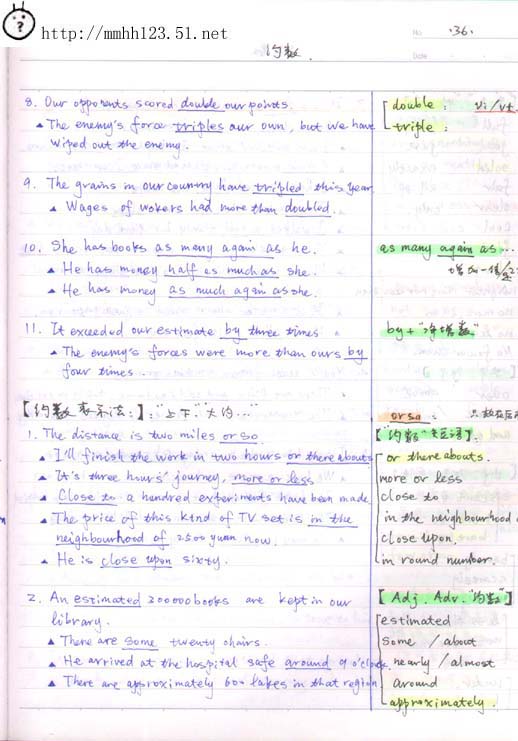 http://mmhh123.51.net
No. 36.
约数
Date
8. Our opponents scored double our points.
▲ The enemy's force triples our own, but we have
wiped out the enemy.
double : vi/vt.
triple :
9. The grains in our country have tripled this year
▲ Wages of wokers had more than doubled.
10. She has books as many again as he.
▲ He has money half as much as she.
▲ He has money as much again as she.
as many again as ...
增加一倍
11. It exceeded our estimate by three times
▲ The enemy's forces were more than ours by
four times.
by + "净增数"
【约数表示法:】: "上下" "大约…"
1. The distance is two miles or so.
▲ I'll finish the work in two hours or there abouts
▲ It's three hours' journey, more or less
▲ Close to a hundred experiments have been made
▲ The price of this kind of TV set is in the
neighbourhood of 2500 yuan now.
▲ He is close upon sixty.
or so :
【"约数"短语】
or there abouts.
more or less
close to
in the neighbourhood
close upon.
in round number.
2. An estimated 300000 books are kept in our
library.
▲ There are some twenty chairs.
▲ He arrived at the hospital safe around 9 o'clock.
▲ There are approximately 600 lakes in that region
【Adj. Adv. "约数"】
estimated
some / about
nearly / almost
around
approximately.